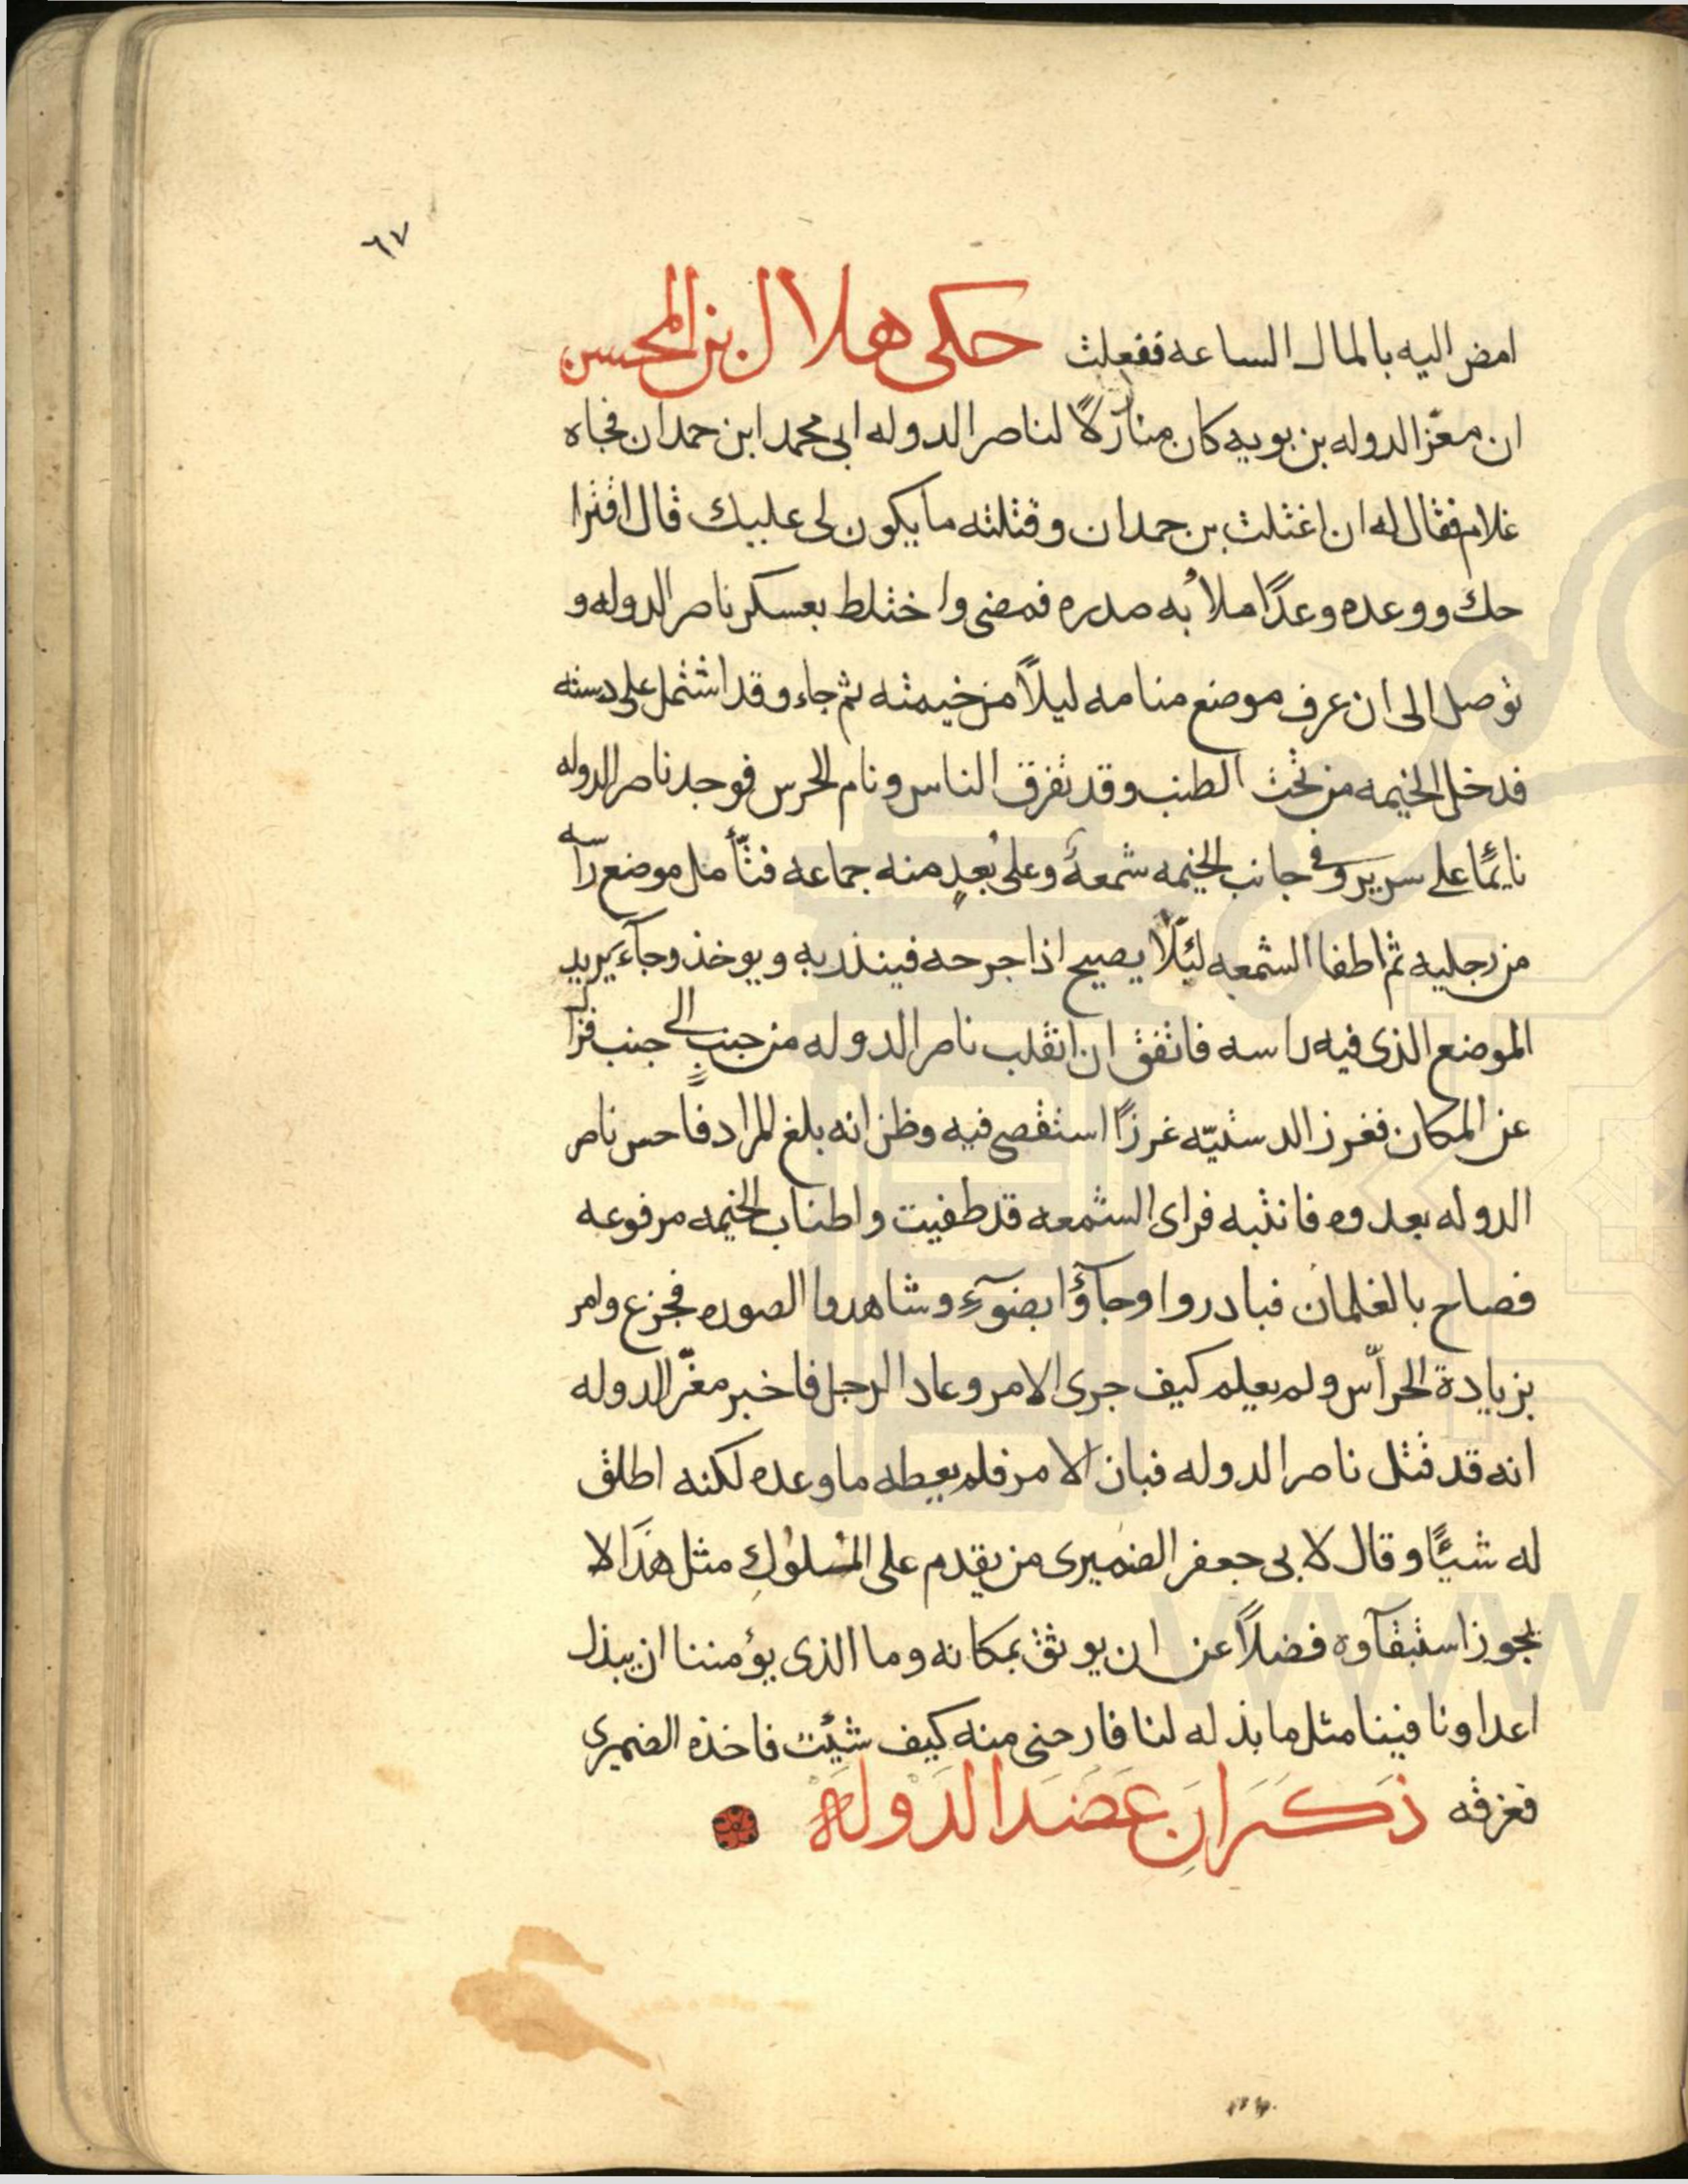 ٦٧
امض اليه بالمال الساعه ففعلت حكى هلال بن المحسن
ان معزّ الدوله بن بويه كان منازلاً لناصر الدوله ابى محمد ابن حمدان فجاه
غلام فقال له ان اغتلت بن حمدان وقتلته ما يكون لى عليك قال اقترا
حك ووعده وعدًا ملأ به صدره فمضى واختلط بعسكر ناصر الدوله و
توصل الى ان عرف موضع منامه ليلاً من خيمته ثم جاء وقد اشتمل على دسته
فدخل الخيمه من تحت الطنب وقد تفرق الناس ونام الحرس فوجد ناصر الدوله
نايمًا على سرير وفى جانب الخيمه شمعة وعلى بُعدٍ منه جماعه فتأمل موضع رأسه
من رجليه ثم اطفا الشمعه لئلّا يصيح اذا جرحه فينذر به ويوخذ وجآء يريد
الموضع الذى فيه راسه فاتفق ان انقلب ناصر الدوله من جنبٍ الى جنب فزال
عن المكان فغرز الدستيّه غرزًا استقصى فيه وظن انه بلغ المراد فاحس ناصر
الدوله بعدوه فانتبه فراى الشمعه قد طفيت واطناب الخيمه مرفوعه
فصاح بالغلمان فبادروا وجآؤا بضوءٍ وشاهدوا الصوره فجزع وامر
بزيادة الحرّاس ولم يعلم كيف جرى الامر وعاد الرجل فاخبر معزّ الدوله
انه قد قتل ناصر الدوله فبان الامر فلم يعطه ما وعده لكنه اطلق
له شيئًا وقال لابى جعفر الضميرى من يقدم على الملوك مثل هذا لا
يجوز استبقآوه فضلاً عن ان يوثق بمكانه وما الذى يؤمننا ان يبذل
اعداونا فينا مثل ما بذله لنا فارحنى منه كيف شئت فاخذه الضميرى
فغرقه ذكر ان عضد الدوله